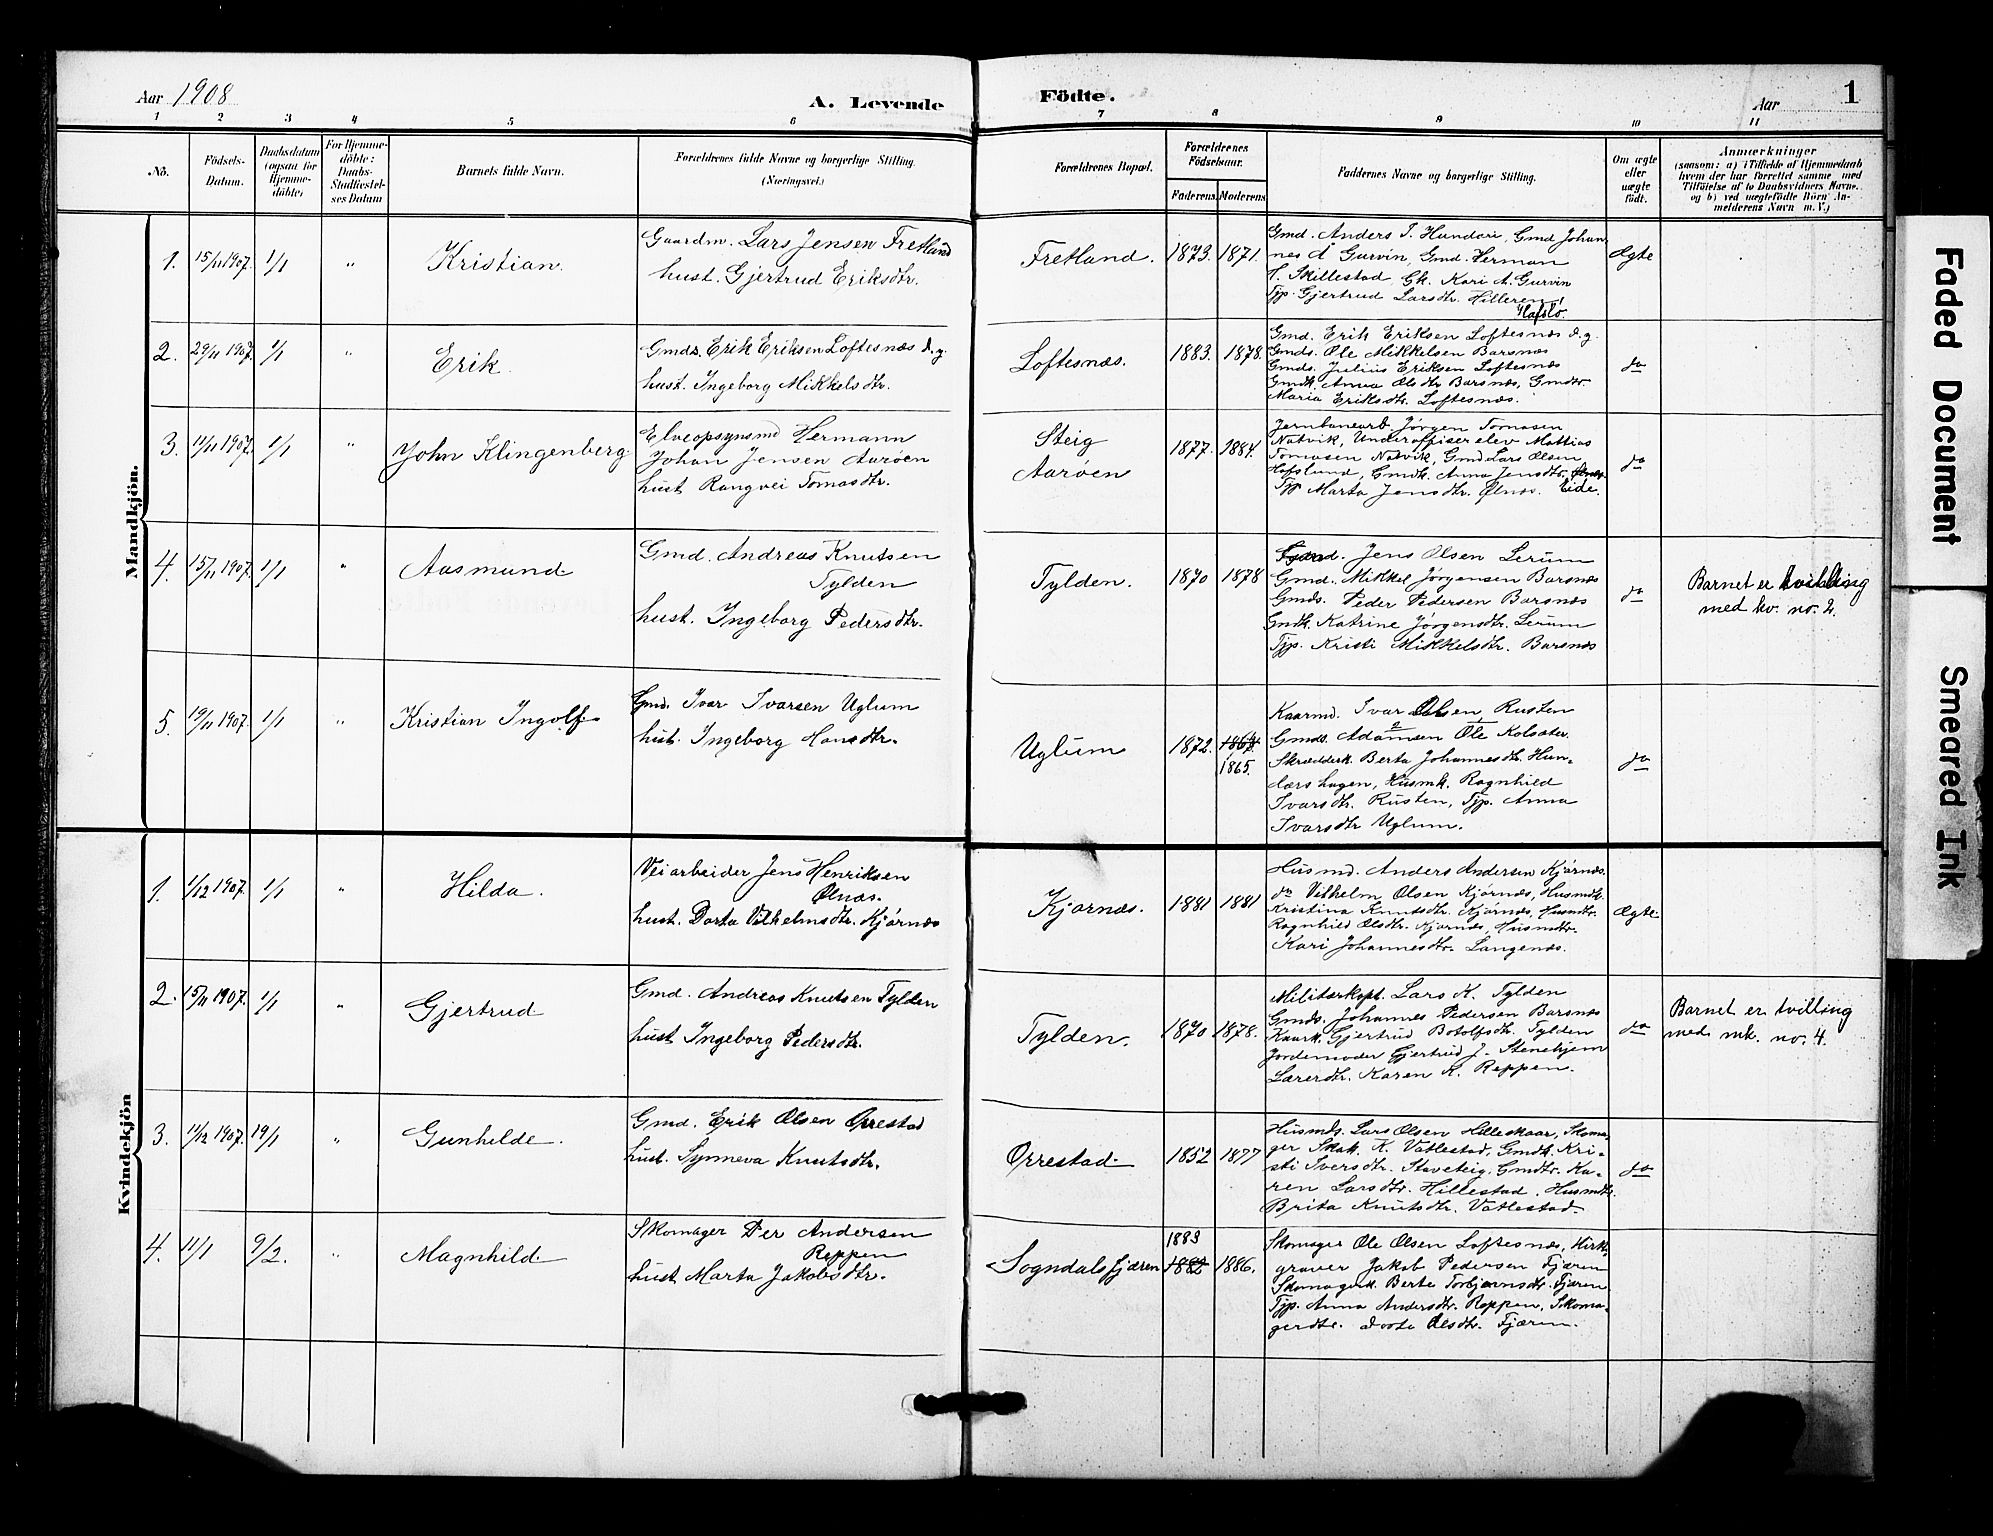 Aar 1908
A. Levende Födte.
Aar
1
1 2 3 4 5 6 7 8 9 10 11
No.
Födsels-
Datum.
Daabsdatum
(ogsaa for
Hjemme-
döbte)
For Hjemme-
döbte:
Daabs-
Stadfæstel-
ses Datum
Barnets fulde Navn.
Forældrenes fulde Navne og borgerlige Stilling.
(Næringsvei.)
Forældrenes Bopæl.
Forældrenes
Födselsaar.
Faderens. Moderens.
Faddernes Navne og borgerlige Stilling.
Om ægte
eller
uægte
födt.
Anmærkninger
(saasom: a) i Tilfælde af Hjemmedaab
hvem der har forrettet samme med
Tilföielse af to Daabsvidners Navne.
og b) ved uægtefödte Börn An-
melderens Navn m. V.)
Mandkjön.
1. 15/11 1907. 1/1 " Kristian.
Gaardm. Lars Jensen Fretland
hust. Gjertrud Eriksdtr.
Fretland. 1873. 1871.
Gmd. Anders J. Hundere, Gmd Johan
nes A Gurvin, Gmd. Herman
H. Skillestad, Gk. Kari A. Gurvin
Tjp. Gjertrud Larsdtr. Hilleren,
Hafslo.
Ægte
2. 29/11 1907. 1/1 " Erik.
Gmds. Erik Eriksen Loftesnæs d.y.
hust. Ingeborg Mikkelsdtr.
Loftesnæs. 1883. 1878.
Gmd. Erik Eriksen Loftesnæs d.y.
Gmds. Ole Mikkelsen Barsnæs
Gmds. Julius Eriksen Loftesnæs
Gmdk. Anna Olsdtr Barsnæs, Gmdtr.
Maria Eriksdtr. Loftesnæs.
do
3. 11/11 1907. 1/1 " John Klingenberg
Elveopsynsmd Hermann
Johan Jensen Aarøen
hust Rangvei Tomasdtr.
Steig
Aarøen
1877. 1884.
Jernbanearb. Jørgen Tomasen
Natvik, Underoffiser elev Mattias
Tomasen Natvik, Gmd Lars Olsen
Hofslund, Gmdk. Anna Jensdtr.
Tjp Marta Jensdtr. Ølnæs. Eide.
do
4. 15/11 1907. 1/1 " Aasmund.
Gmd. Andreas Knutsen
Tylden
hust. Ingeborg Pedersdtr.
Tylden. 1870 1878
Jens Olsen Lerum
Gmd. Mikkel Jørgensen Barsnæs
Gmds. Peder Pedersen Barsnæs
Gmdk. Katrine Jørgensdtr. Lerum
Tjp. Kristi Mikkelsdtr. Barsnæs
do
Barnet er tvilling
med kv. no. 2.
5. 19/11 1907. 1/1 " Kristian Ingolf.
Gmd. Ivar Ivarsen Uglum
hust. Ingeborg Hansdtr.
Uglum 1872. 1864.
1865.
Kaarmd. Ivar Olsen, Rusten
Gmds. Adamsen Ole Kolsæter.
Skrædderk. Berta Johannesdtr. Hun-
dærshagen, Husmk. Ragnhild
Ivarsdtr. Rusten, Tjp. Anna
Ivarsdtr Uglum.
do
Kvindekjön
1. 1/12 1907. 1/1 " Hilda.
Veiarbeider Jens Henriksen
Ølnæs.
hust. Dorta Vilhelmsdtr. Kjørnæs
Kjørnæs. 1881 1881
Husmd. Anders Andersen Kjørnæs.
do Vilhelm Olsen Kjørnæs, Husmdk.
Kristina Knutsdtr. Kjørnæs, Husmdtr.
Ragnhild Olsdtr. Kjørnæs, Husmdtr.
Kari Johannesdtr. Langenæs.
Ægte.
2. 15/11 1907. 1/1 " Gjertrud
Gmd. Andreas Knutsen Tylden
hust Ingeborg Pedersdtr.
Tylden. 1870 1878.
Militærkapt. Lars K. Tylden
Gmds. Johannes Pedersen Barsnæs
Kaark. Gjertrud Botolfsdtr. Tylden
Jordemoder Gjertrud J. Stenehjem
Lærerdtr. Karen K. Reppen.
do
Barnet er tvilling
med mk. no. 4.
3. 11/12 1907. 19/1 " Gunhilde.
Gmd. Erik Olsen Ørrestad
hust. Synneva Knutsdtr.
Ørrestad 1852 1877
Husmds. Lars Olsen Hilleskaar, Skoma-
ger Skak. K. Vatlestad, Gmdk. Kri-
sti Iversdtr. Staveteig, Gmdtr. Ka-
ren Larsdtr. Hillestad, Husmdtr.
Brita Knutsdtr. Vatlestad.
do
4. 11/1 9/2. " Magnhild.
Skomager Per Andersen
Reppen
hust Marta Jakobsdtr.
Sogndalsfjæren 1883
1882 1886.
Skomager Ole Olsen Loftesnæs, Kirke-
graver Jakob Pedersen Fjæren
Skomagerk. Berta Torbjørnsdtr. Fjæren
Tjp. Anna Andersdtr. Reppen, Skoma-
gerdtr. Dorta Olsdtr. Fjæren.
Faded Document
Smeared Ink